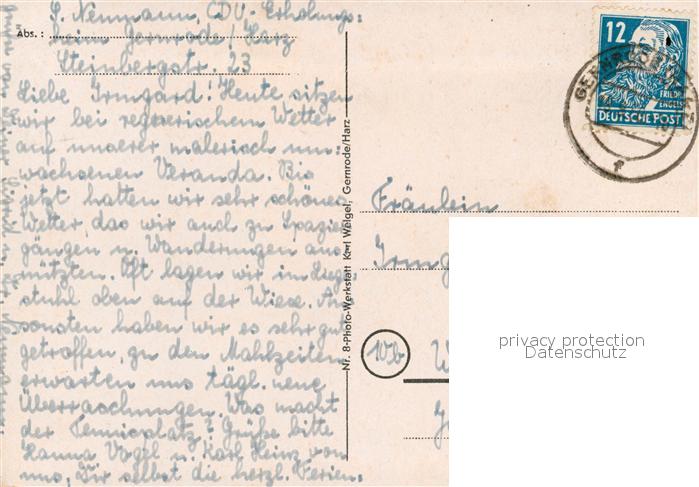 Abs.: S. Neumann, CDU-Erholungs-
heim Gernrode/Harz
Steinbergstr. 23
Liebe Irmgard! Heute sitzen
wir bei regnerischem Wetter
auf unserer malerisch um-
wachsenen Veranda. Bis
jetzt hatten wir sehr schönes
Wetter, das wir auch zu Spazier-
gängen u. Wanderungen aus-
nützten. Oft lagen wir im Liege-
stuhl oben auf der Wiese. An-
sonsten haben wir es sehr gut
getroffen, zu den Mahlzeiten
erwarten uns tägl. neue
Überraschungen. Was macht
der Tennisplatz? Grüße bitte
Hanna Vogel u. Karl Heinz von
uns, Dir selbst die herzl. Ferien-
grüße von Deiner
Nr. 8-Photo-Werkstatt Karl Weigel, Gernrode/Harz
12
FRIEDR.
ENGELS
DEUTSCHE POST
GERNRODE
Fräulein
Irmg
10b
W
privacy protection
Datenschutz